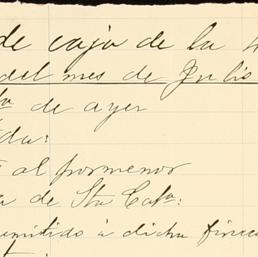 de caja de la
del mes de Julio
de ayer
da:
al pormenor
de Sta Cata:
emitido à dicha finca